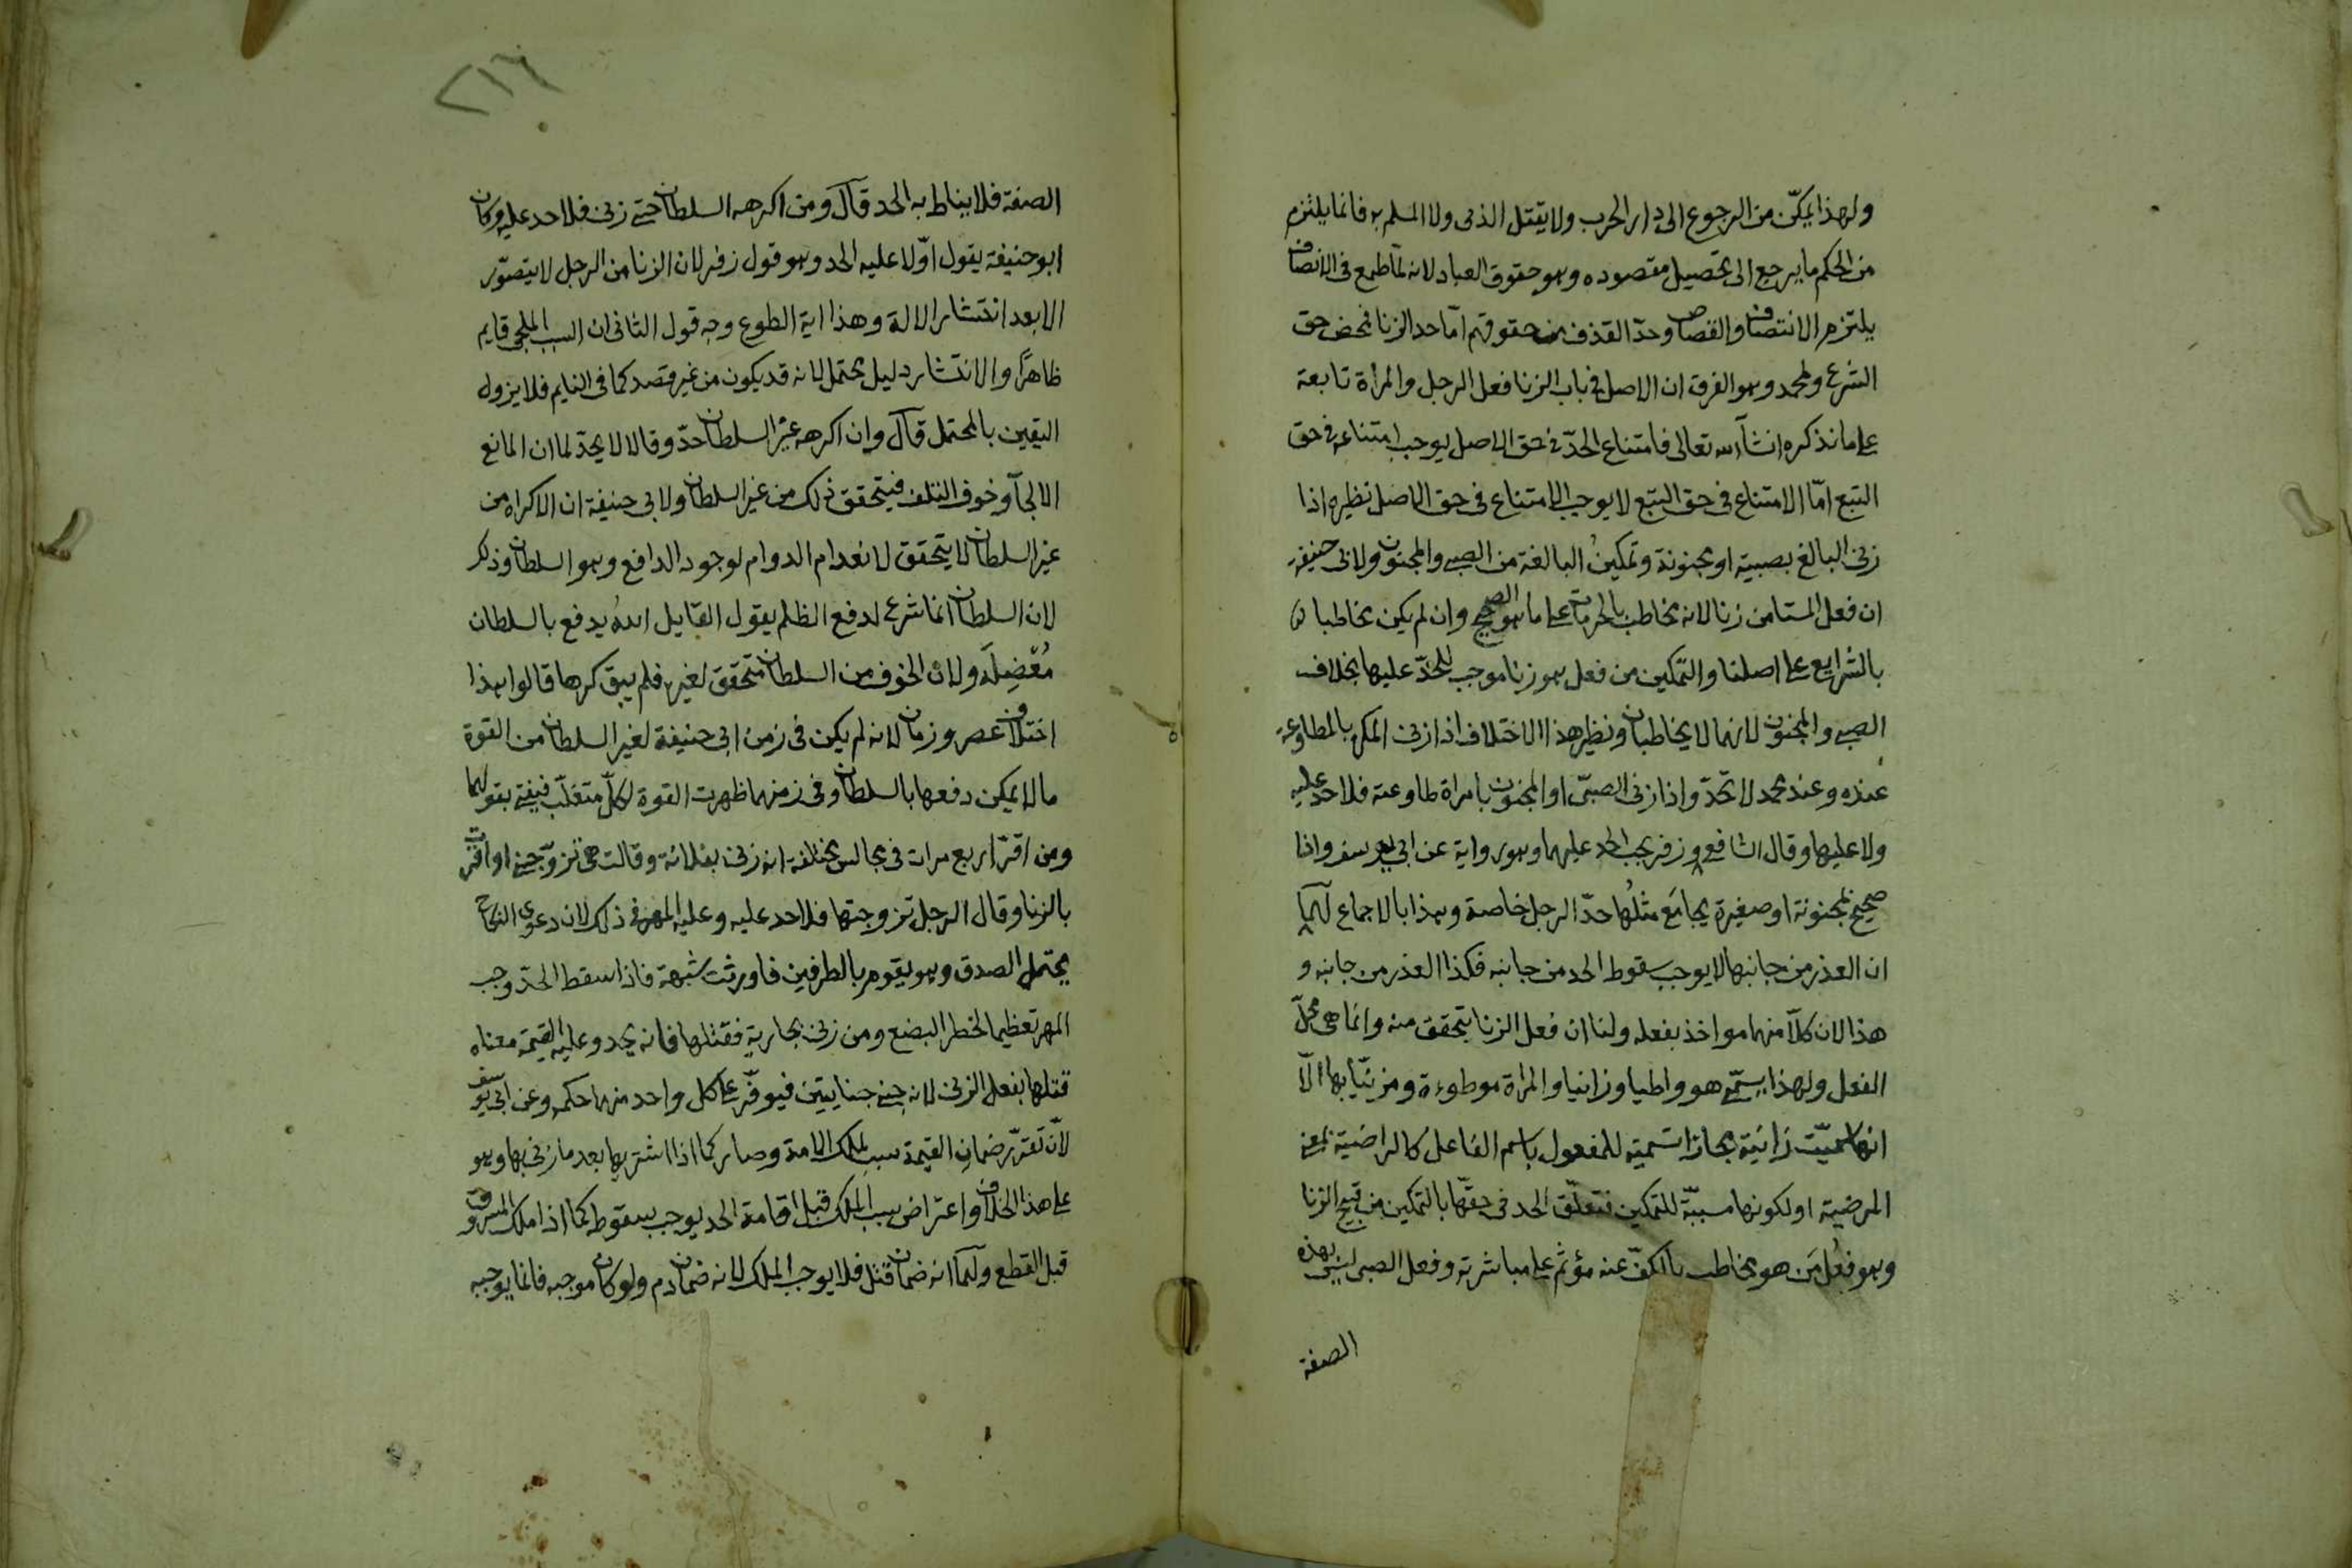 ولهذا يمكّن من الرجوع الى دار الحرب ولا يقتل الذمى ولا المسلم به فانما يلتزم
من الحكم ما يرجع الى تحصيل مقصوده وهو حقوق العباد لانه لمّا طمع فى الانصاف
يلتزم الانتصاف والقصاص وحدّ القذف من حقوقهم امّا حد الزنا محض حق
الشرع ولمحمد وهو الفرق ان الاصل فى باب الزنا فعل الرجل والمرأة تابعة
على ما نذكره انشآ الله تعالى فامتناع الحدّ فى حق الاصل يوجب امتناعه فى حق
التبع امّا الامتناع فى حق التبع لا يوجب الامتناع فى حق الاصل نظيره اذا
زنى البالغ بصبية او مجنونة وتمكينُ البالغة من الصبى والمجنون ولابى حنيفة
ان فعل المستامن زنا لانه مخاطب بالحرمات على ما هو الصحيح وان لم يكن مخاطبا
بالشرايع على اصلنا والتمكين من فعل هو زنا موجب للحدّ عليها بخلاف
الصبى والمجنون لانهما لا يخاطبان ونظير هذا الاختلاف اذا زنى المكره بالمطاوعة
عنده وعند محمد لا تحدّ واذا زنى الصبىّ او المجنون بامراة طاوعته فلا حد عليه
ولا عليها وقال الشافعى وزفر يجب الحد عليهما وهو رواية عن ابى يوسف واذا
صحيح بمجنونة او صغيرة يجامَع مثلُها حدّ الرجل خاصة وهذا بالاجماع لهما
ان العذر من جانبها لا يوجب سقوط الحد من جانبه فكذا العذر من جانبه و
هذا لان كلّا منهما مواخذ بفعله ولنا ان فعل الزنا يتحقق منه وانما هى محلّ
الفعل ولهذا يسمّى هو واطيا وزانيا والمراة موطوءة ومزنيّا بها الّا
انها سميّت زانية مجازا تسمية للمفعول باسم الفاعل كالراضية بمعنى
المرضية او لكونها مسبّبة للتمكين فتعلّق الحد فى حقّها بالتمكين من قبيح الزنا
وهو فعلُ مَن هو مخاطب بالكفّ عنه مؤثم على مباشرته وفعل الصبى ليس بهذه
الصفة
٢١٦
الصفة فلا يناط به الحد قال ومن اكرهه السلطان حتى زنى فلا حد عليه وكان
ابو حنيفة يقول اوّلا عليه الحد وهو قول زفر لان الزنا من الرجل لا يتصوّر
الا بعد انتشار الالة وهذا اية الطوع وجه قول الثانى ان السبب الملجى قايم
ظاهرًا والانتشار دليل محتمل لانه قد يكون من غير قصد كما فى النايم فلا يزول
اليقين بالمحتمل قال وان اكرهه غيرُ السلطان حدّ وقالا لا يحدّ لما ان المانع
الالجآ وخوف التلف فيتحقق ذلك من غير السلطان ولابى حنيفة ان الاكراه من
غير السلطان لا يتحقق لانعدام الدوام لوجود الدافع وهو السلطان وذلك
لان السلطان انما شرع لدفع الظلم يقول القايل الله يدفع بالسلطان
مُعْضِلَة ولان الخوف من السلطان متحقق لغيره فلم يبق كرها قالوا هذا
اختلاف عصر وزمان لانه لم يكن فى زمن ابى حنيفة لغير السلطان من القوة
ما لا يمكن دفعها بالسلطان وفى زمنهما ظهرت القوة لكلّ متغلّب فيفتى بقولهما
ومن اقرّ اربع مرات فى مجالس مختلفة انه زنى بفلانة وقالت هى تزوّجنى او اقرّت
بالزنا وقال الرجل تزوجتها فلا حد عليه وعليه المهر فى ذلك لان دعوى النكاح
يحتمل الصدق وهو يقوم بالطرفين فاورثت شبهة فاذا سقط الحدّ وجب
المهر تعظيما لخطر البضع ومن زنى بجارية فقتلها فانه يحد وعليه القيمة معناه
قتلها بفعل الزنى لانه جنى جنايتين فيوفّر على كل واحد منهما حكمه وعن ابى يوسف
لانّ تقرّر ضمان القيمة سبب لملك الامة وصار كما اذا اشتريها بعد ما زنى بها وهو
على هذا الخلاف واعتراض سبب الملك قبل اقامة الحد يوجب سقوطه كما اذا ملك المسروق
قبل القطع ولهما انه ضمان قتل فلا يوجب الملك لانه ضمان دم ولو كان موجبه فانما يوجبه